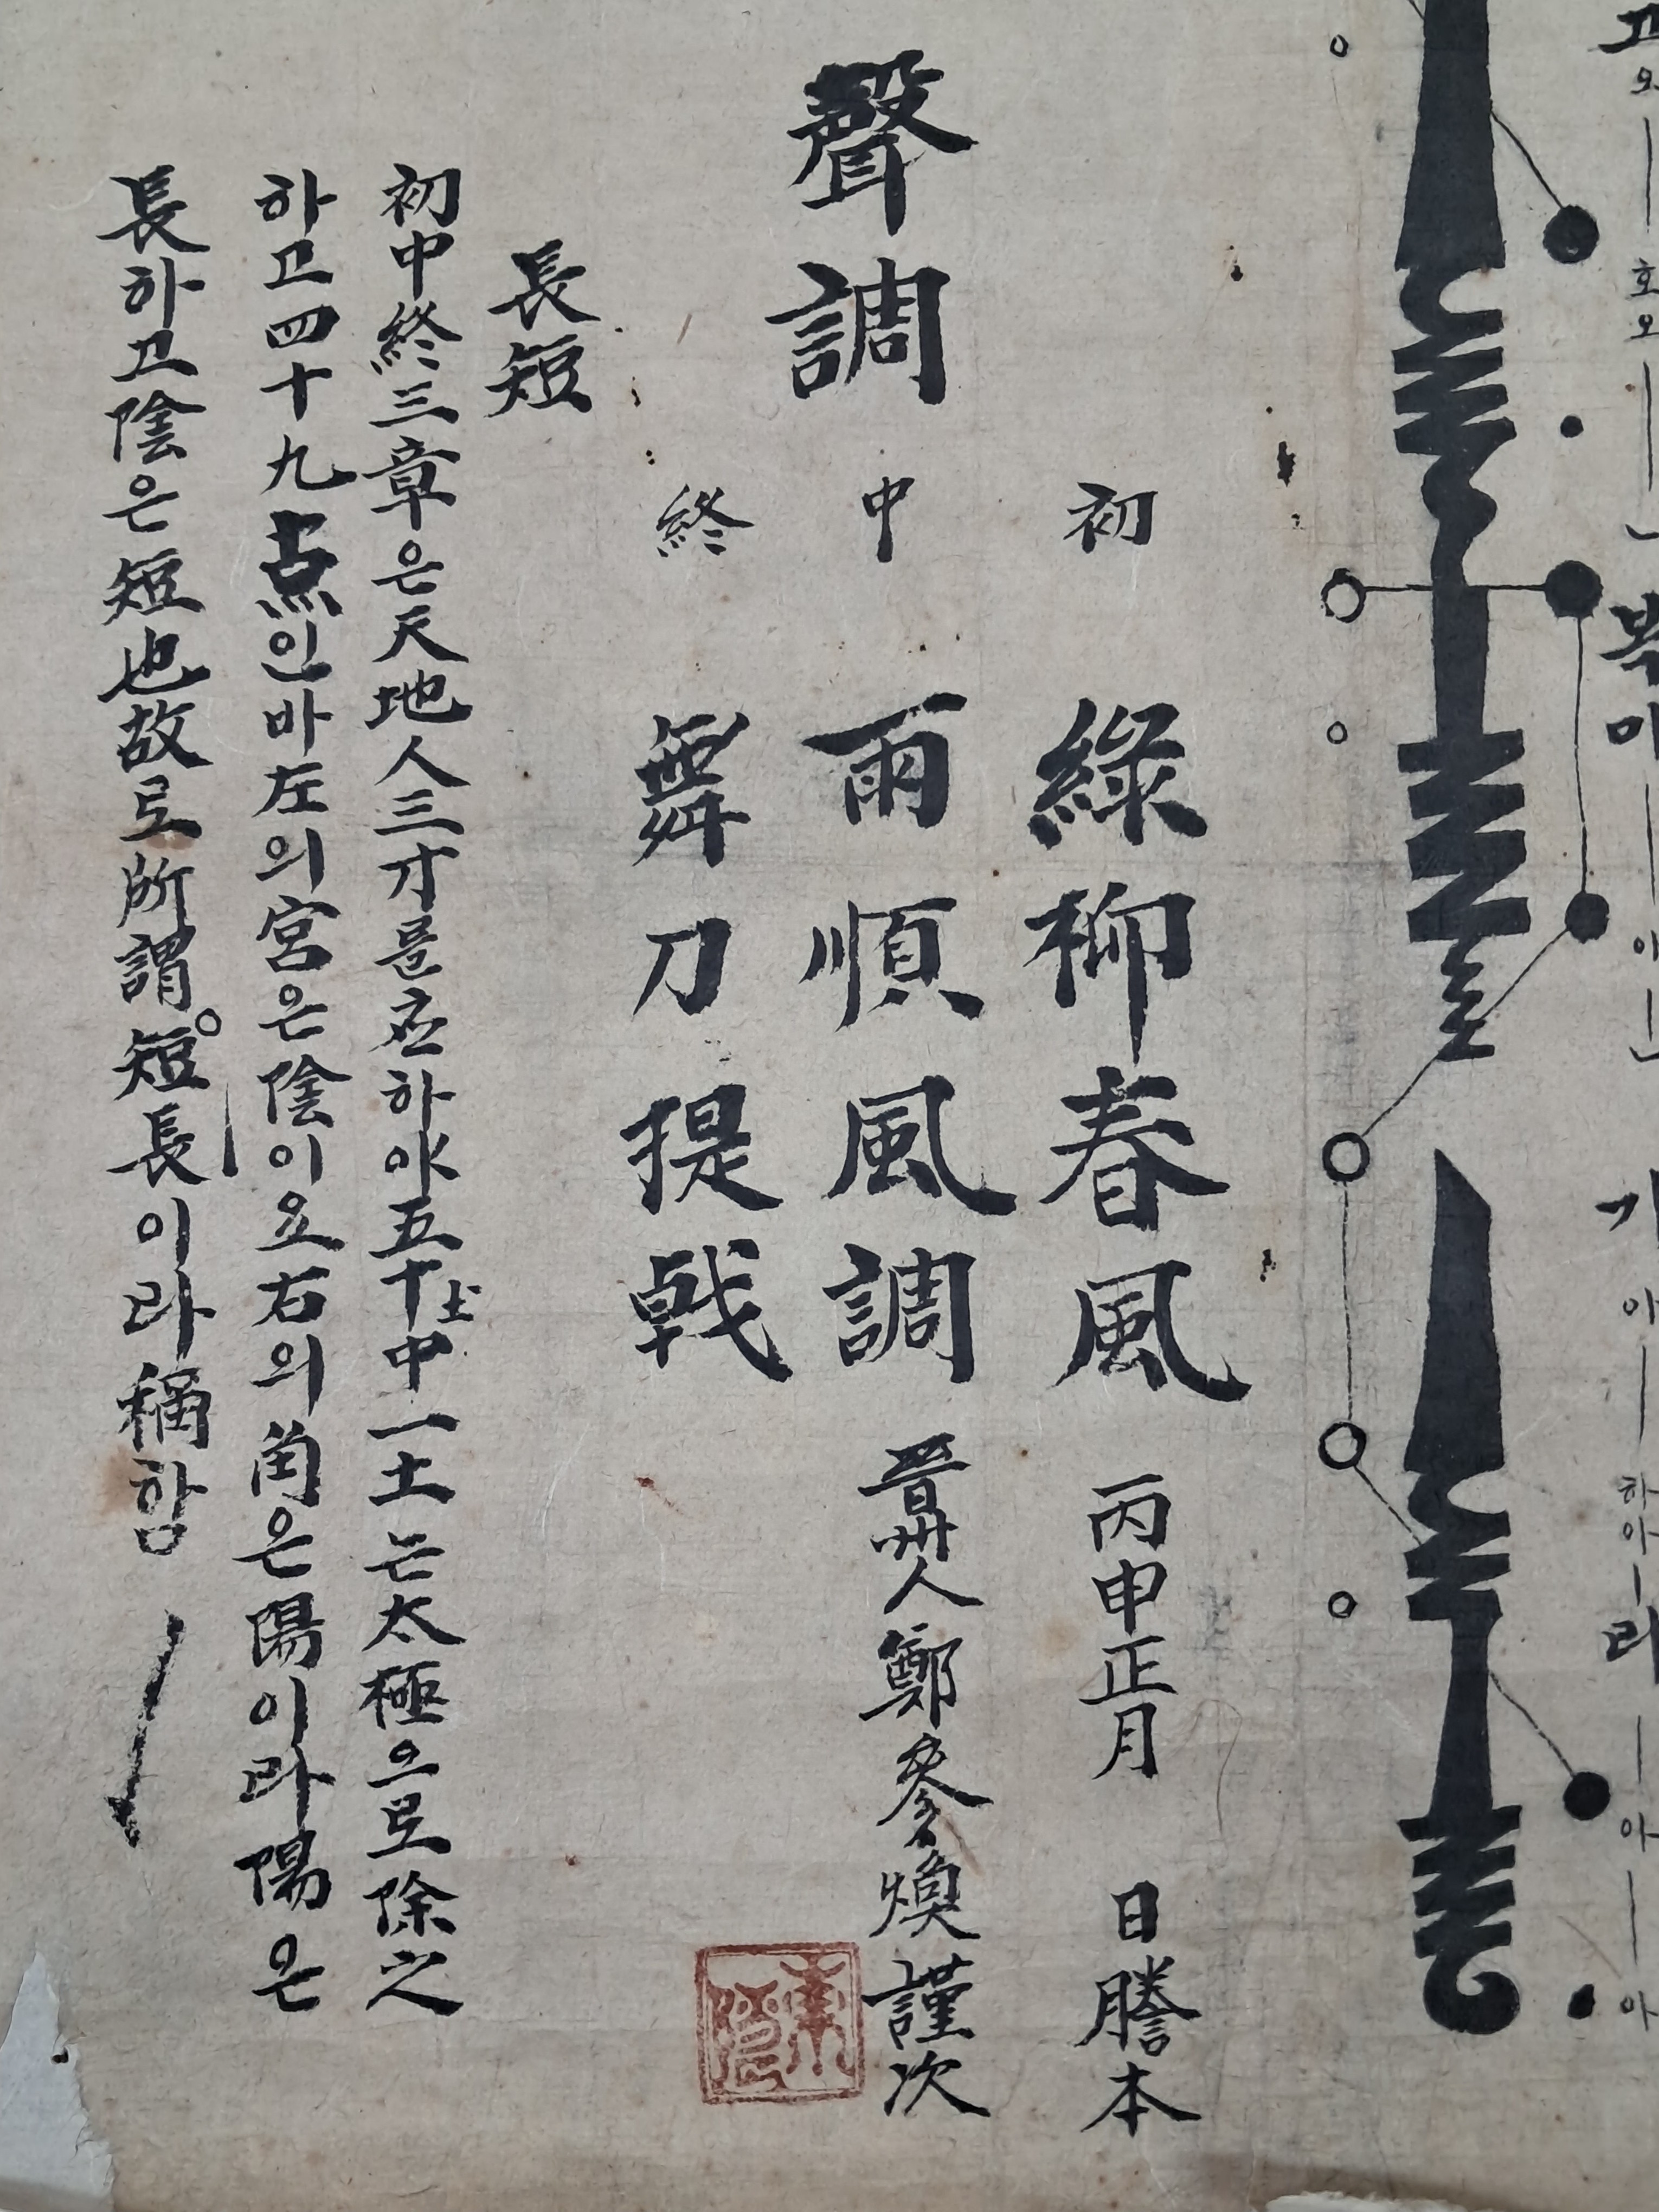 고 오 호 오 아 기 아 하 아 라 아 아
初 綠柳春風 丙申正月 日謄本
聲調 中 雨順風調 晋州人鄭參煥謹次
終 舞刀提戟
長短
初中終三章은天地人三才를应하야五十土中一土는太極으로除之
하고四十九点인바左의宮은陰이요右의角은陽이라陽은
長하고陰은短也故로所謂短長이라稱함